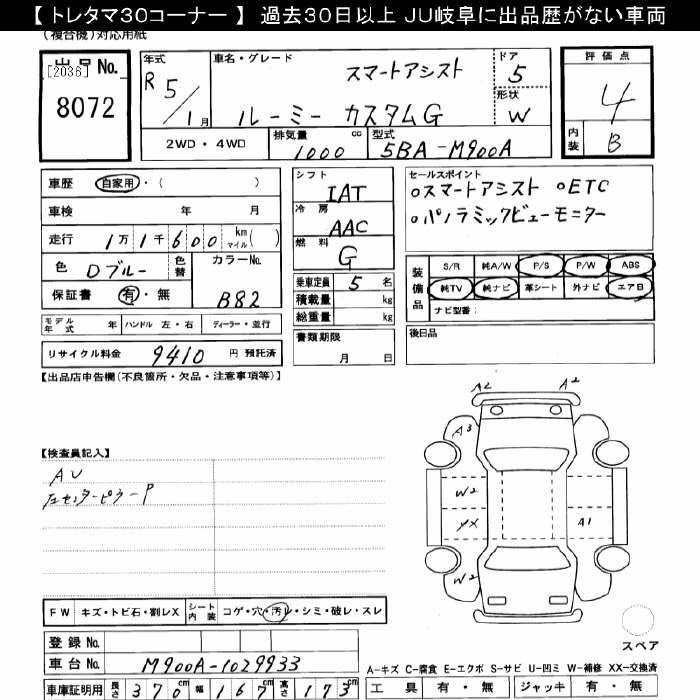 【 トレタマ30コーナー 】 過去30日以上 JU岐阜に出品歴がない車両
(複合機)対応用紙
出品No.
[2036]
8072
年式
R 5/1月
車名・グレード
スマートアシスト
ルーミー カスタムG
ドア
5
形状
W
評価点
4
内装
B
2WD・4WD
排気量
1000 cc
型式
5BA-M900A
車歴 自家用・( )
車検 年 月
走行 1万1千600 km マイル( )
色 Dブルー
色替
カラーNo.
B82
保証書 有・無
モデル年式 年 ハンドル 左・右 ディーラー・並行
リサイクル料金 9410 円 預託済
シフト
IAT
冷房
AAC
燃料
G
乗車定員 5 名
積載量 kg
総重量 kg
書類期限
月 日
セールスポイント
○スマートアシスト ○ETC
○パノラミックビューモニター
装備品
S/R 純A/W P/S P/W ABS
純TV 純ナビ 革シート 外ナビ エアB
ナビ型番:
後日品
【出品店申告欄(不良箇所・欠品・注意事項等)】
【検査員記入】
AU
左センターピラーP
A2 A2
A3
W2
XX A1
W2
スペア
FW キズ・トビ石・割レX シート内装 コゲ・穴・汚レ・シミ・破レ・スレ
登録No.
車台No. M900A-1029933
車庫証明用 長さ 370cm 幅 167cm 高さ 173cm
A-キズ C-腐食 E-エクボ S-サビ U-凹ミ W-補修 XX-交換済
工具 有・無 ジャッキ 有・無